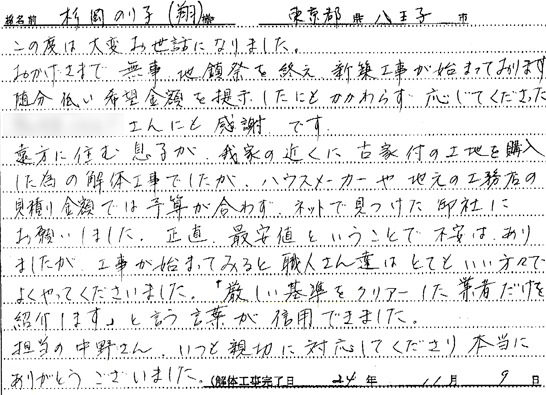 様名前 杉岡のり子(翔)様 東京都 県 八王子 市
この度は大変お世話になりました。
おかげさまで無事、地鎮祭を終え、新築工事が始まっております
随分低い希望金額を提示したにもかかわらず応じてくださった
さんにも感謝です。
遠方に住む息子が、我家の近くに古家付の土地を購入
した為の解体工事でしたが、ハウスメーカーや地元の工務店の
見積り金額では予算が合わず、ネットで見つけた御社に
お願いしました。正直、最安値ということで不安はあり
ましたが、工事が始まってみると職人さん達はとてもいい方々で
よくやってくださいました。「厳しい基準をクリアーした業者だけを
紹介します」と言う言葉が信用できました。
担当の中野さん、いつも親切に対応してくださり本当に
ありがとうございました。(解体工事完了日 24年 11月 9日)